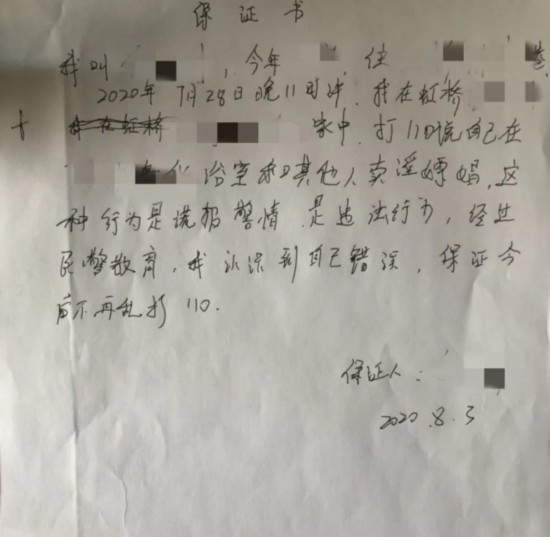 保证书
我叫 ,今年 ,住
2020年7月28日晚11时许,我在虹桥
我在虹桥 家中,打110谎自己在
浴室和其他人卖淫嫖娼,这
种行为是谎报警情,是违法行为,经过
民警教育,我认识到自己错误,保证今
后不再乱打110.
保证人:
2020.8.3